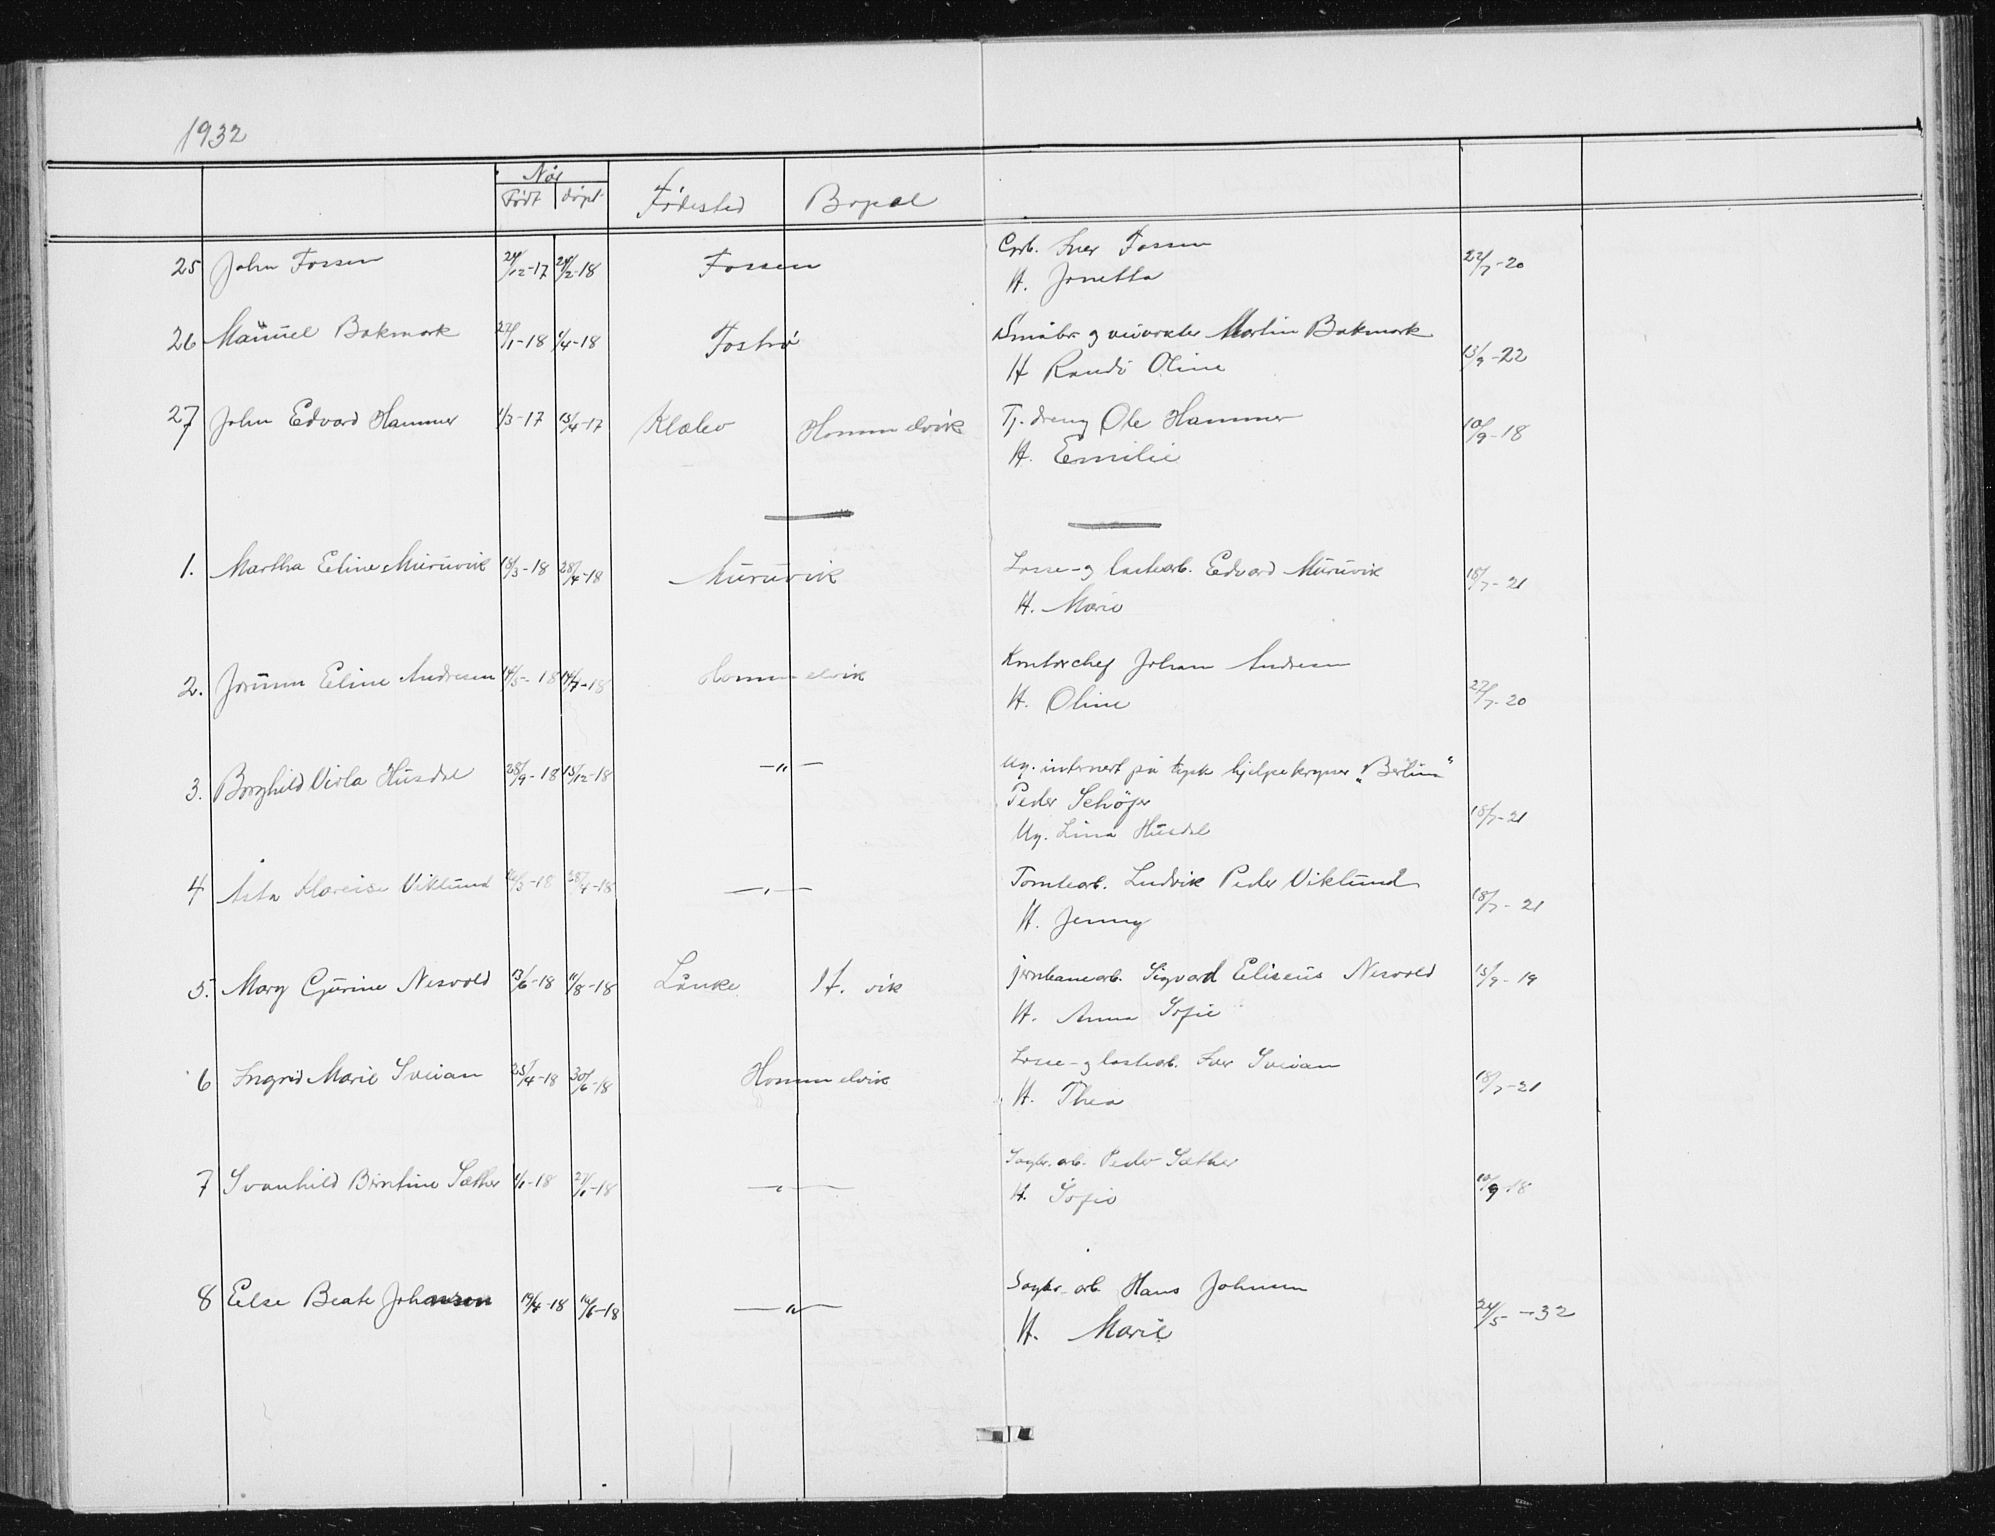 1932
Når
Født døpt Fødested Bopæl
25 John Fossen 24/12-17 24/2-18 Fossen Iver Fossen 22/7-20
H. Jonetta
26 Manuel Bakmark 27/1-18 1/4-18 Småbr. og veivokter Martin Bakmark 13/9-22
H Randi Oline
27 John Edvard Hammer 1/3-17 15/4-17 Klæbo Hommelvik Tj. dreng Ole Hammer 10/9-18
H. Emilie
1. Martha Eline Muruvik 18/3-18 28/4-18 Muruvik Losse- og lastearb. Edvard Muruvik 18/7-21
H. Marie
2. Jorunn Eline Andresen 14/5-18 14/7-18 Hommelvik Kontorchef Johan Andresen 27/7-20
H. Oline
3. Borghild Viola Husdal 28/9-18 15/12-18 -"- Ug. internert på tysk hjelpekryser "Berlin"
Peder Schöfer 18/7-21
Ug. Lina Husdal
4 Asta Klareise Viklund 28/4-18 -"- Tomtearb. Ludvik Peder Viklund 18/7-21
H. Jenny
5. Mary Gjurine Nesvold 13/6-18 11/8-18 Lånke H.vik jernbanearb. Sigvard Eliseus Nesvold 15/9-19
H. Anna Sofie
6 Ingrid Marie Sveian 25/4-18 30/6-18 Hommelvik Losse- og lastearb. Iver Sveian 18/7-21
H. Thea
7 Svanhild Berntine Sæther 1/1-18 27/1-18 -"- Sagbr. arb. Peder Sæther 10/9-18
H. Sofie
8 Else Beate Johansen 19/4-18 16/6-18 -"- Sagbr. arb. Hans Johnsen 24/5-32
H. Marie